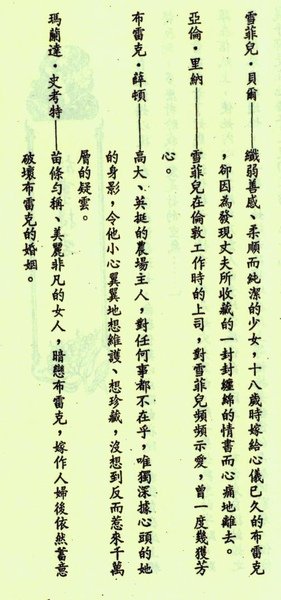 雪菲兒·貝爾——纖弱善感、柔順而純潔的少女，十八歲時嫁給心儀已久的布雷克
，卻因為發現丈夫所收藏的一封封纏綿的情書而心痛地離去。
亞倫·里納——雪菲兒在倫敦工作時的上司，對雪菲兒頻頻示愛，曾一度幾獲芳
心。
布雷克·薛頓——高大、英挺的農場主人，對任何事都不在乎，唯獨深據心頭的她
的身影，令他小心翼翼地想維護、想珍藏，沒想到反而惹來千萬
層的疑雲。
瑪蘭達·史考特——苗條勻稱、美麗非凡的女人，暗戀布雷克，嫁作人婦後依然蓄意
破壞布雷克的婚姻。